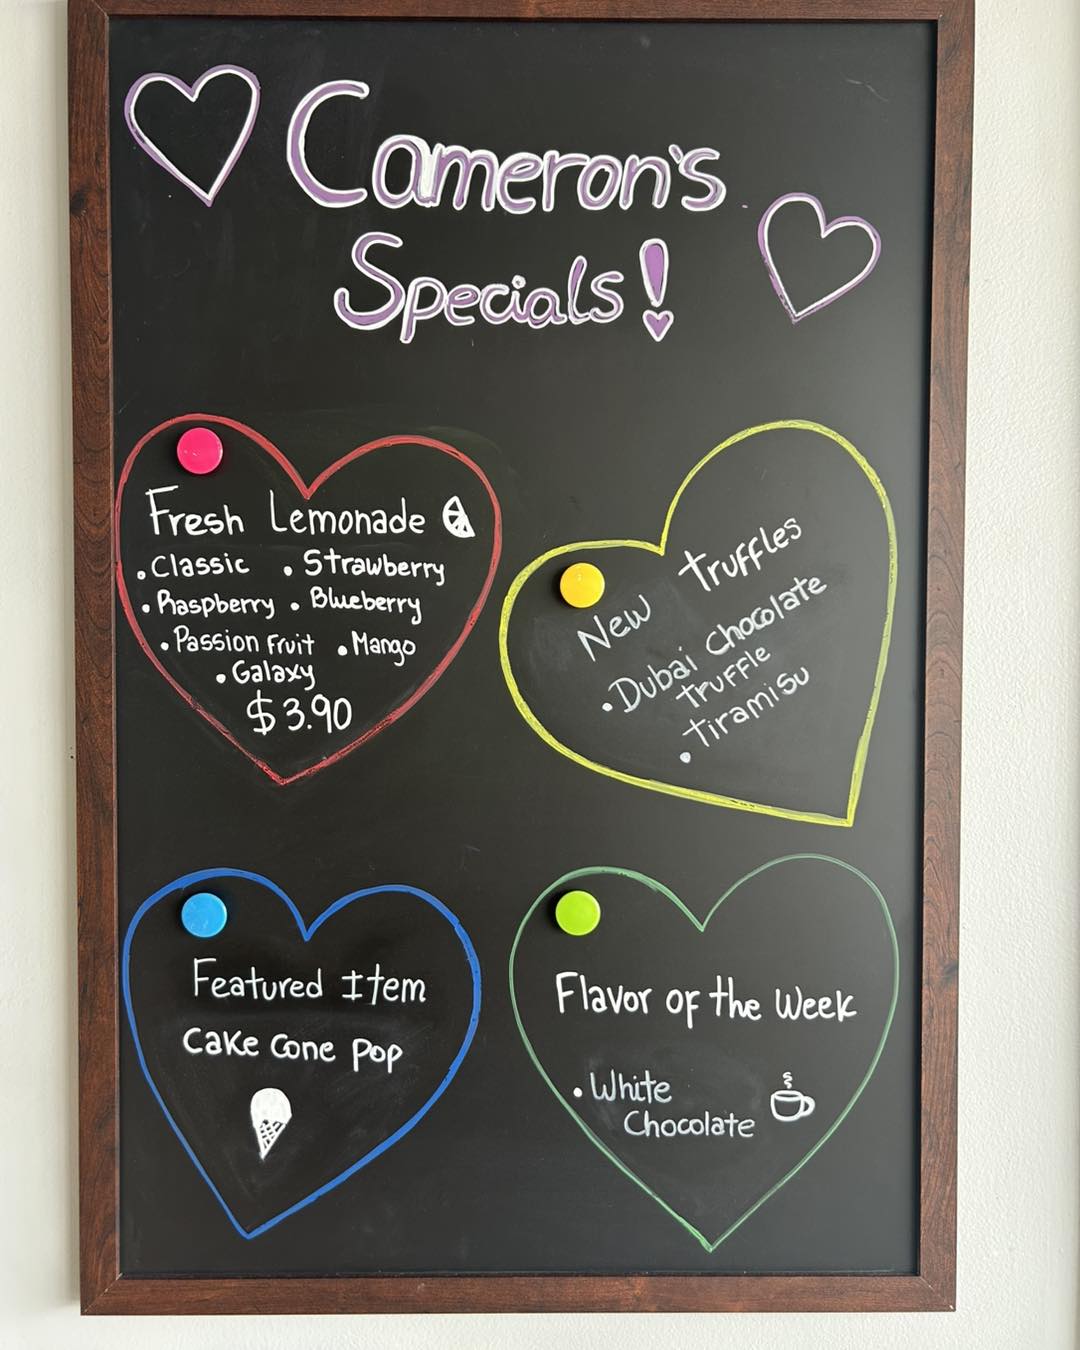 Cameron's
Specials!
Fresh Lemonade
• Classic • Strawberry
• Raspberry • Blueberry
• Passion Fruit • Mango
• Galaxy
$3.90
New truffles
• Dubai Chocolate
truffle
• tiramisu
Featured Item
Cake Cone Pop
Flavor of the Week
• White
Chocolate